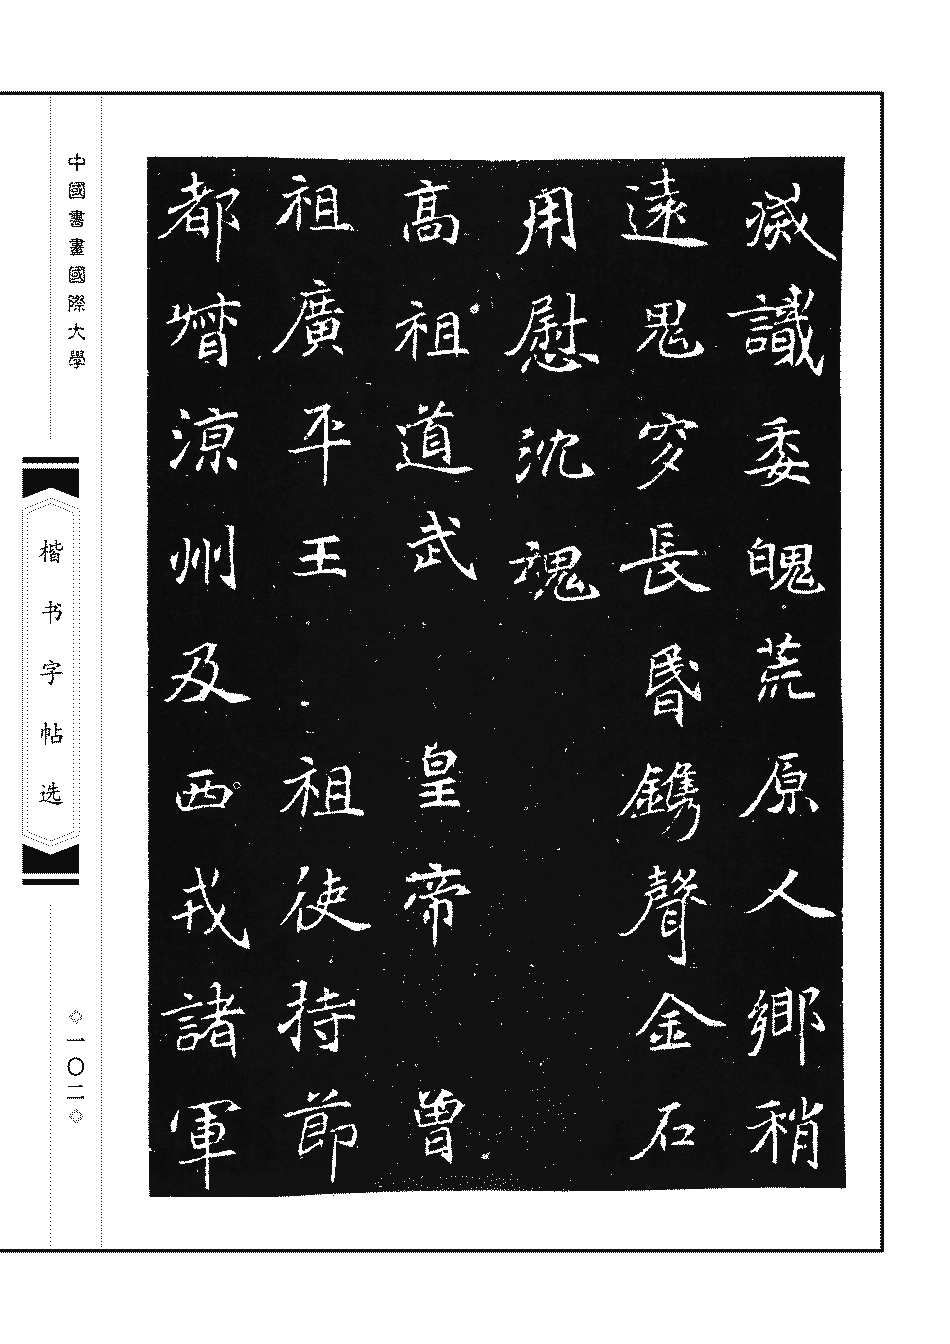 減識委魄荒原人鄉稍
遠鬼穸長昏鐫聲金石
用慰沈魂
高祖道武 皇帝 曾
祖廣平王 祖使持節
都督涼州及西戎諸軍
中國書畫國際大學
楷书字帖选
◇一〇二◇